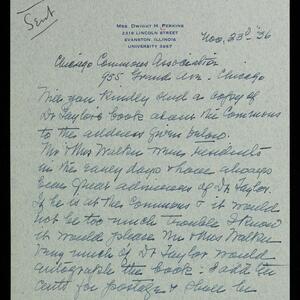 Sent
MRS. DWIGHT H. PERKINS
2319 LINCOLN STREET
EVANSTON, ILLINOIS
UNIVERSITY 3667
Nov. 23d '36
Chicago Commons Association
955 Grand Ave. Chicago
Will you kindly send a copy of
Dr Taylor's book about the Commons
to the address given below.
Mr & Mrs Walker were Residents
in the early days & have always
been great admirers of Dr Taylor.
If he is at the Commons & it would
not be too much trouble I know
it would please Mr & Mrs Walker
very much if Dr Taylor would
autograph the book. I add
cents for postage &